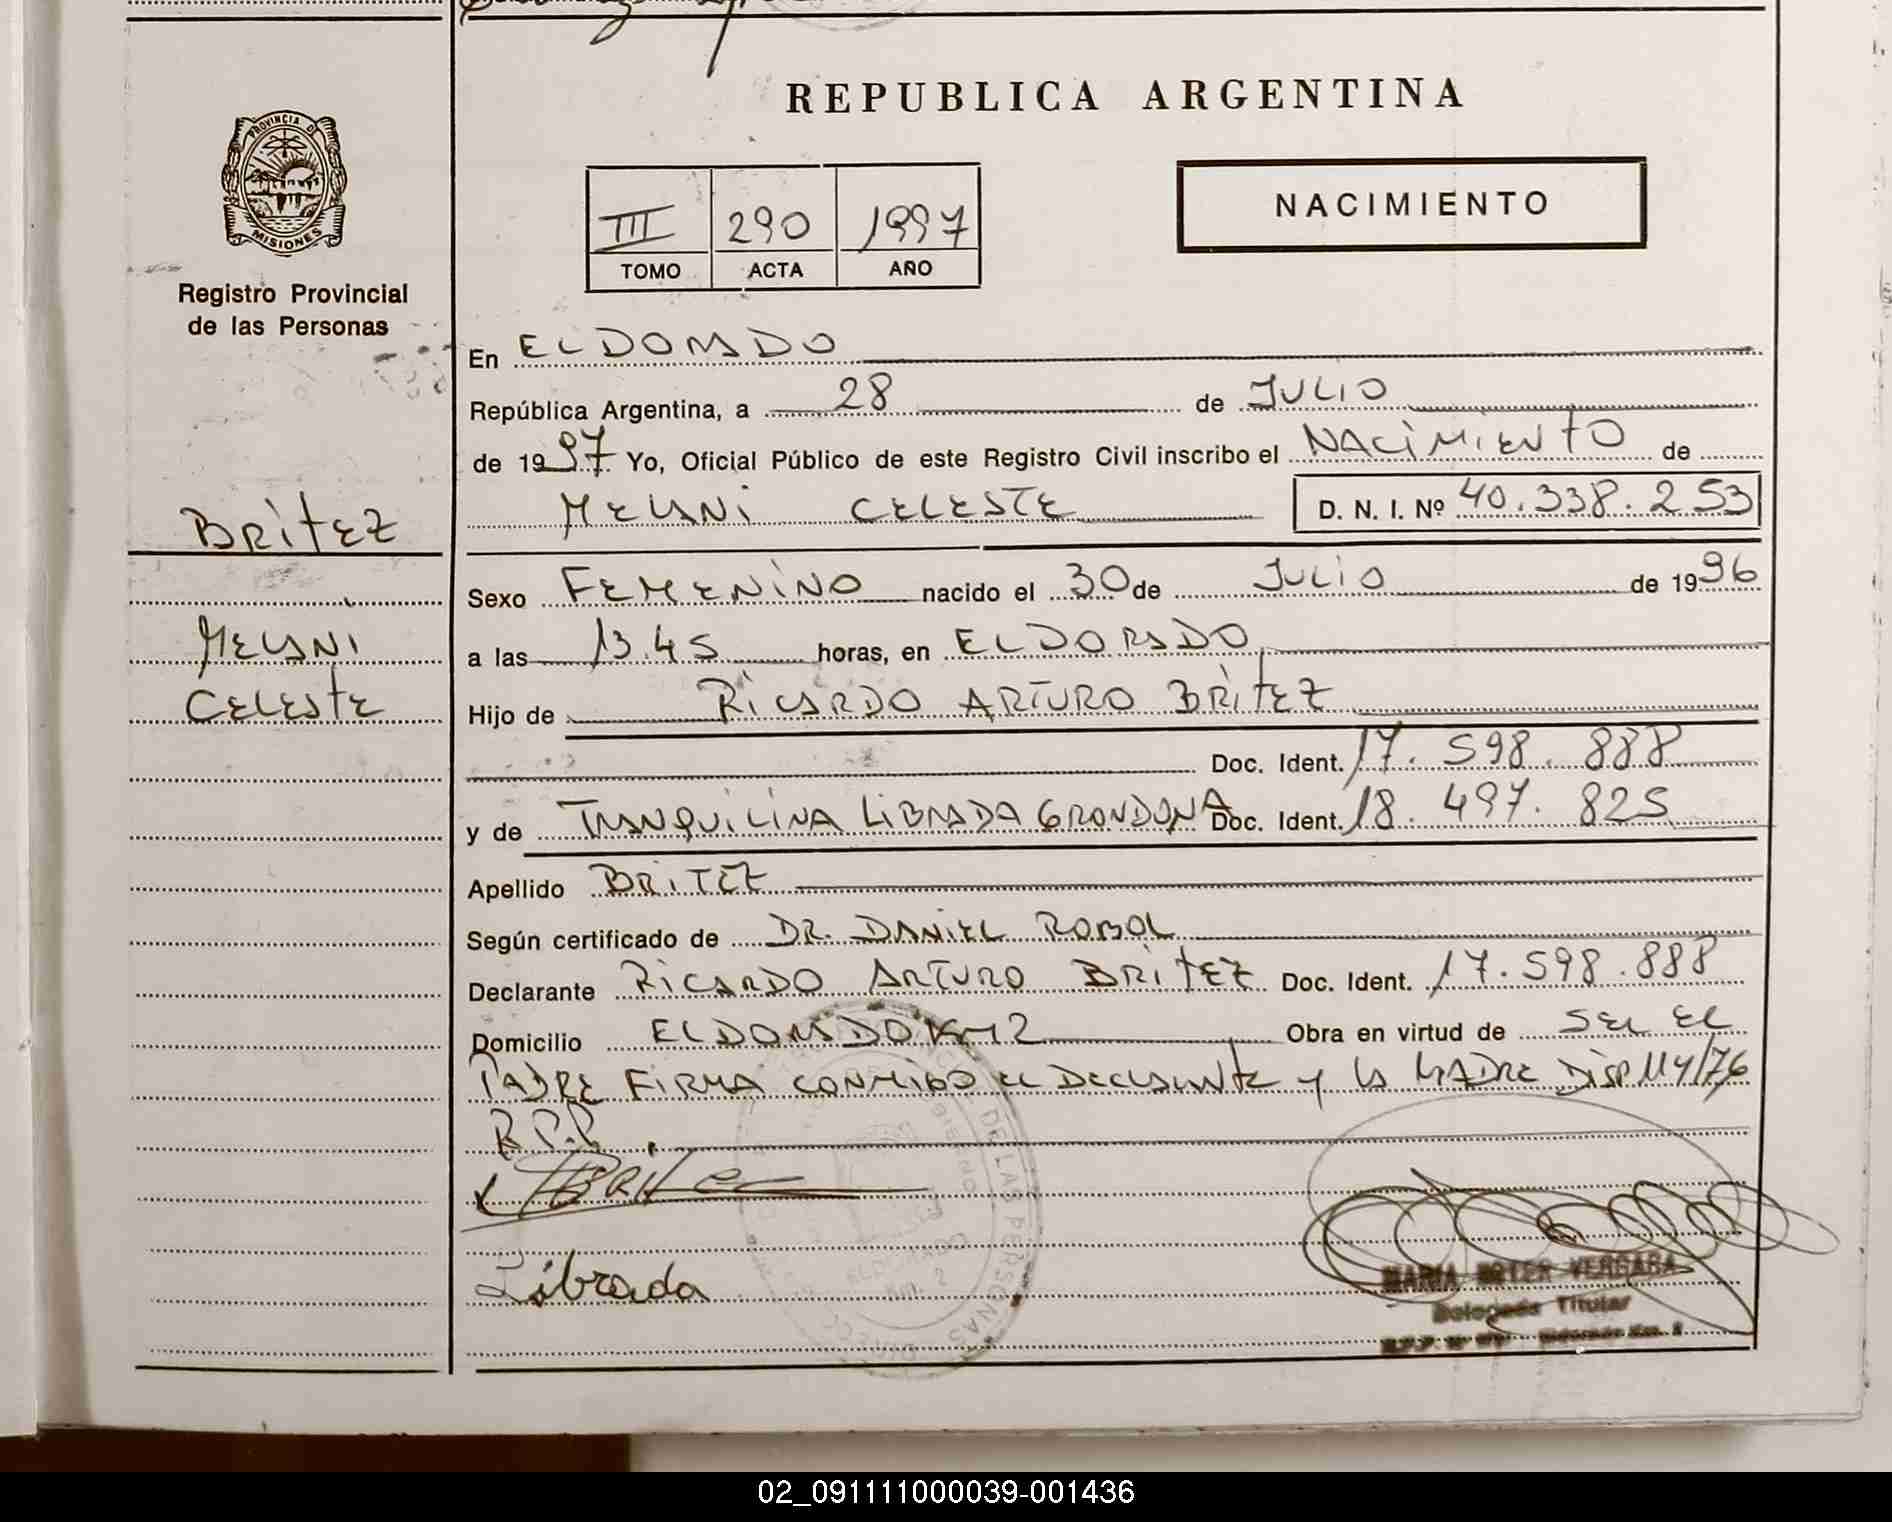 REPUBLICA ARGENTINA
PROVINCIA DE
MISIONES
Registro Provincial
de las Personas
III 290 1997
TOMO ACTA AÑO
NACIMIENTO
En ELDORADO
República Argentina, a 28 de JULIO
de 1997 Yo, Oficial Público de este Registro Civil inscribo el NACIMIENTO de
MELANI CELESTE D. N. I. Nº 40.338.253
BRITEZ
MELANI
CELESTE
Sexo FEMENINO nacido el 30 de JULIO de 1996
a las 13.45 horas, en ELDORADO
Hijo de RICARDO ARTURO BRITEZ
Doc. Ident. 17.598.888
y de TRANQUILINA LIBRADA GRONDONA Doc. Ident. 18.497.825
Apellido BRITEZ
Según certificado de DR. DANIEL ROBOL
Declarante RICARDO ARTURO BRITEZ Doc. Ident. 17.598.888
Domicilio ELDORADO KM 2 Obra en virtud de SER EL
PADRE FIRMA CONMIGO EL DECLARANTE Y LA MADRE DISP 114/76
R.P.P.
Britez
Librada
DE LAS PERSONAS
ELDORADO
Km. 2
MARIA ESTER VERGARA
Delegada Titular
02_091111000039-001436